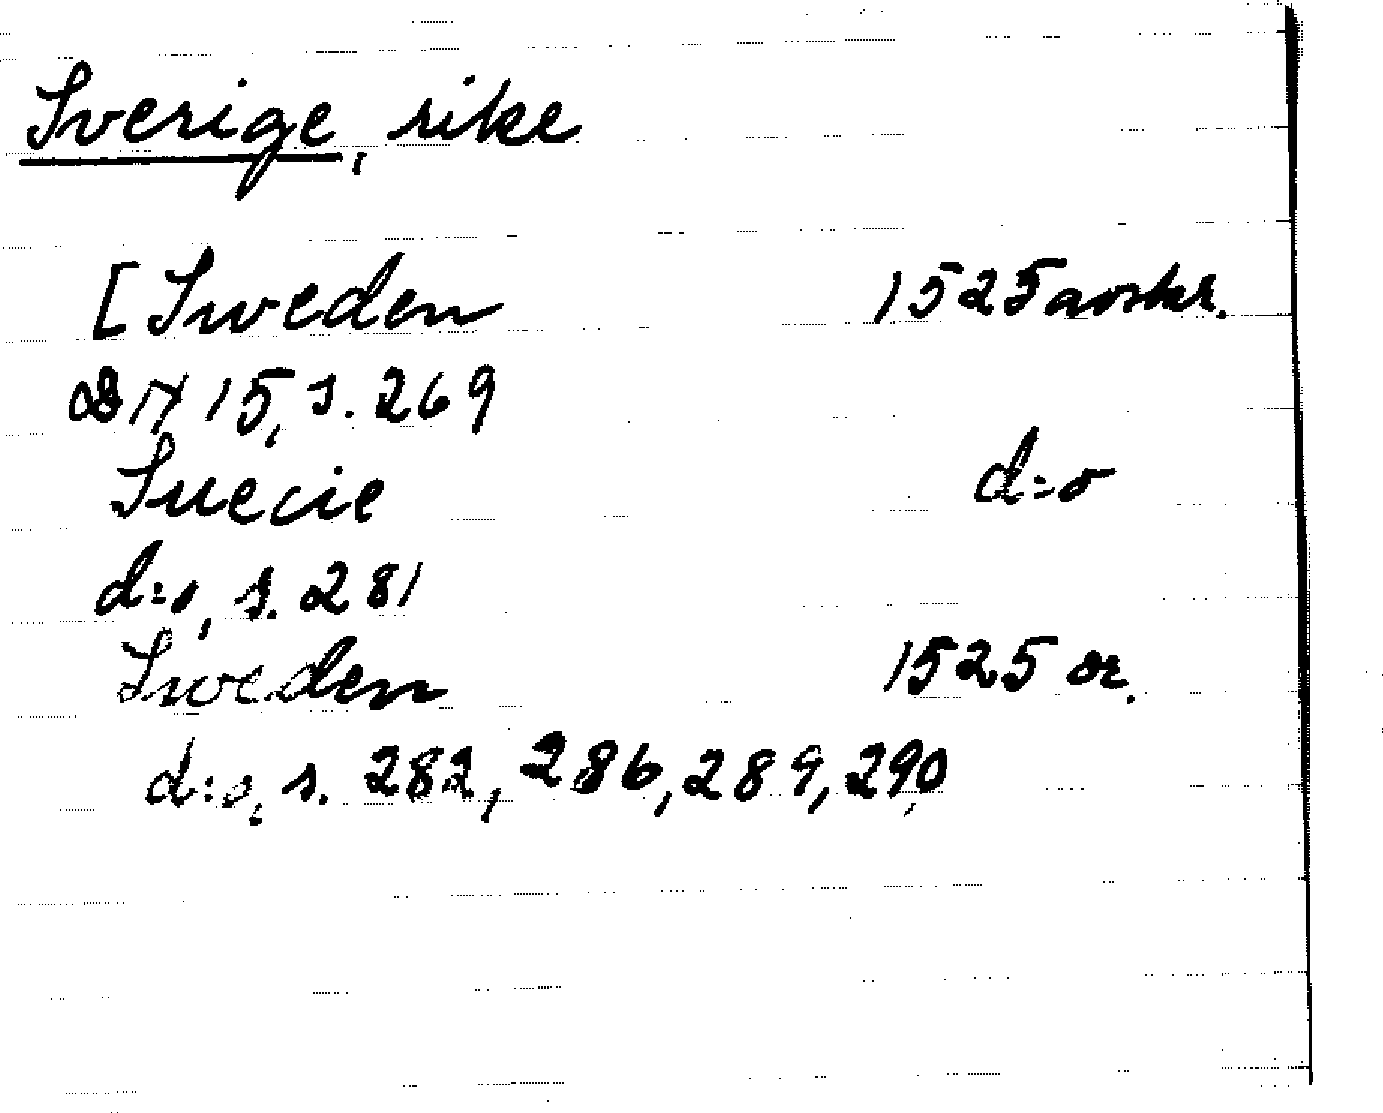 Sverige, rike
[Sweden 1525 avskr.
DN 15, s. 269
Suecie d:o
d:o, s. 281
Sweden 1525 or.
d:o, s. 282, 286, 289, 290